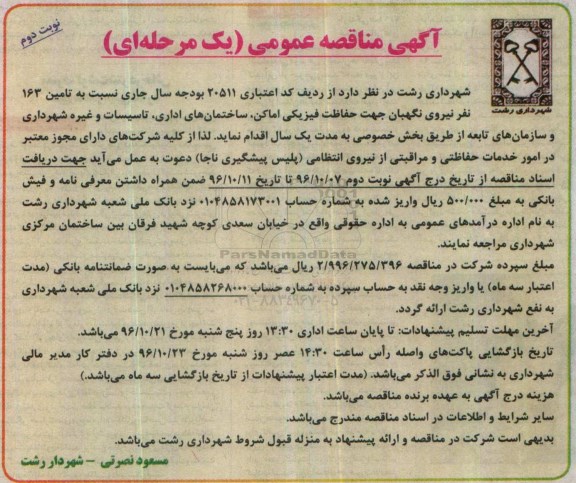 نوبت دوم
آگهی مناقصه عمومی (یک مرحله‌ای)
شهرداری رشت
شهرداری رشت در نظر دارد از ردیف کد اعتباری ۲۰۵۱۱ بودجه سال جاری نسبت به تامین ۱۶۳
نفر نیروی نگهبان جهت حفاظت فیزیکی اماکن، ساختمان‌های اداری، تاسیسات و غیره شهرداری
و سازمان‌های تابعه از طریق بخش خصوصی به مدت یک سال اقدام نماید. لذا از کلیه شرکت‌های دارای مجوز معتبر
در امور خدمات حفاظتی و مراقبتی از نیروی انتظامی (پلیس پیشگیری ناجا) دعوت به عمل می‌آید جهت دریافت
اسناد مناقصه از تاریخ درج آگهی نوبت دوم ۹۶/۱۰/۰۷ تا تاریخ ۹۶/۱۰/۱۱ ضمن همراه داشتن معرفی نامه و فیش
بانکی به مبلغ ۵۰۰/۰۰۰ ریال واریز شده به شماره حساب ۰۱۰۴۸۵۸۱۷۳۰۰۱ نزد بانک ملی شعبه شهرداری رشت
به نام اداره درآمدهای عمومی به اداره حقوقی واقع در خیابان سعدی کوچه شهید فرقان بین ساختمان مرکزی
شهرداری مراجعه نمایند.
مبلغ سپرده شرکت در مناقصه ۲/۹۹۶/۲۷۵/۳۹۶ ریال می‌باشد که می‌بایست به صورت ضمانتنامه بانکی (مدت
اعتبار سه ماه) یا واریز وجه نقد به حساب سپرده به شماره حساب ۰۱۰۴۸۵۸۲۶۸۰۰۰ نزد بانک ملی شعبه شهرداری
به نفع شهرداری رشت ارائه گردد.
آخرین مهلت تسلیم پیشنهادات: تا پایان ساعت اداری ۱۳:۳۰ روز پنج شنبه مورخ ۹۶/۱۰/۲۱ می‌باشد.
تاریخ بازگشایی پاکت‌های واصله رأس ساعت ۱۴:۳۰ عصر روز شنبه مورخ ۹۶/۱۰/۲۳ در دفتر کار مدیر مالی
شهرداری به نشانی فوق الذکر می‌باشد. (مدت اعتبار پیشنهادات از تاریخ بازگشایی سه ماه می‌باشد.)
هزینه درج آگهی به عهده برنده مناقصه می‌باشد.
سایر شرایط و اطلاعات در اسناد مناقصه مندرج می‌باشد.
بدیهی است شرکت در مناقصه و ارائه پیشنهاد به منزله قبول شروط شهرداری رشت می‌باشد.
مسعود نصرتی – شهردار رشت
ParsNamadData